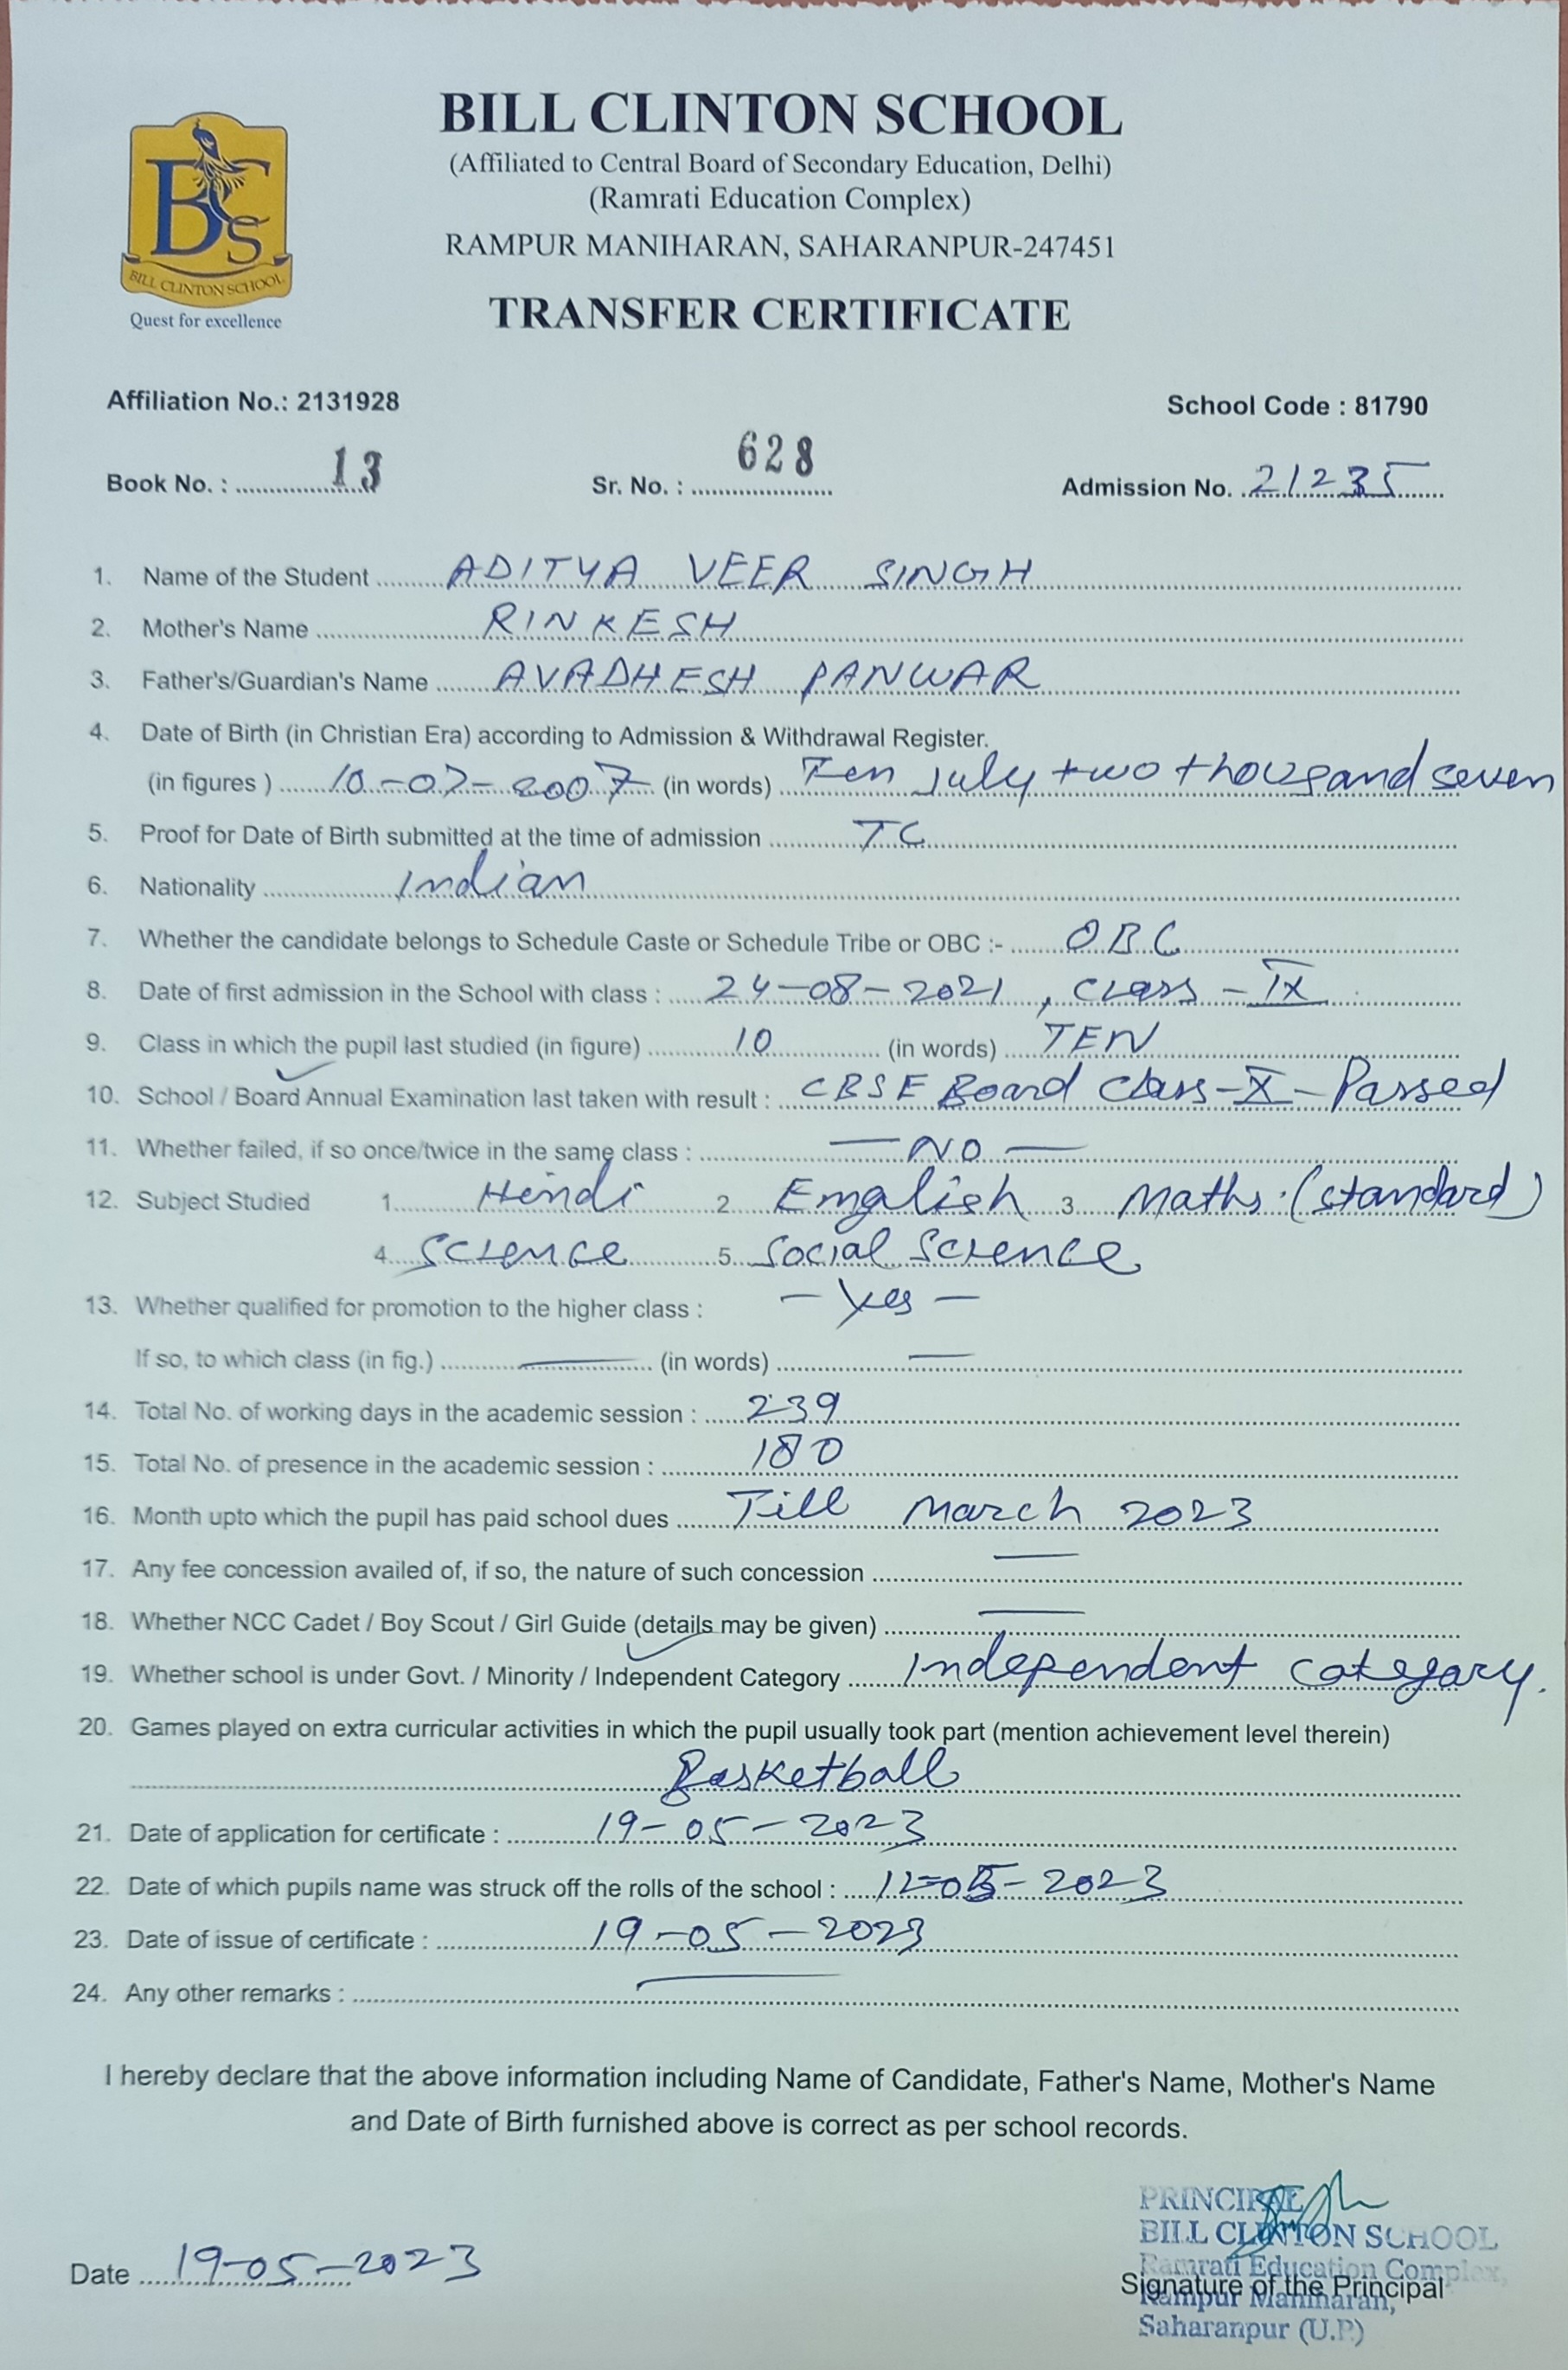 BILL CLINTON SCHOOL
(Affiliated to Central Board of Secondary Education, Delhi)
(Ramrati Education Complex)
RAMPUR MANIHARAN, SAHARANPUR-247451
BCS
BILL CLINTON SCHOOL
Quest for excellence
TRANSFER CERTIFICATE
Affiliation No.: 2131928 School Code : 81790
Book No. : 13 Sr. No. : 628 Admission No. 21235
1. Name of the Student ADITYA VEER SINGH
2. Mother's Name RINKESH
3. Father's/Guardian's Name AVADHESH PANWAR
4. Date of Birth (in Christian Era) according to Admission & Withdrawal Register.
(in figures ) 10-07-2007 (in words) Ten July two thousand seven
5. Proof for Date of Birth submitted at the time of admission TC
6. Nationality Indian
7. Whether the candidate belongs to Schedule Caste or Schedule Tribe or OBC :- OBC
8. Date of first admission in the School with class : 24-08-2021, Class - IX
9. Class in which the pupil last studied (in figure) 10 (in words) TEN
10. School / Board Annual Examination last taken with result : CBSE Board Class-X-Passed
11. Whether failed, if so once/twice in the same class : — NO —
12. Subject Studied 1. Hindi 2. English 3. Maths.(standard)
4. Science 5. Social Science
13. Whether qualified for promotion to the higher class : - Yes -
If so, to which class (in fig.) — (in words) —
14. Total No. of working days in the academic session : 239
15. Total No. of presence in the academic session : 180
16. Month upto which the pupil has paid school dues Till March 2023
17. Any fee concession availed of, if so, the nature of such concession —
18. Whether NCC Cadet / Boy Scout / Girl Guide (details may be given) —
19. Whether school is under Govt. / Minority / Independent Category Independent category.
20. Games played on extra curricular activities in which the pupil usually took part (mention achievement level therein)
Basketball
21. Date of application for certificate : 19-05-2023
22. Date of which pupils name was struck off the rolls of the school : 12-05-2023
23. Date of issue of certificate : 19-05-2023
24. Any other remarks : —
I hereby declare that the above information including Name of Candidate, Father's Name, Mother's Name
and Date of Birth furnished above is correct as per school records.
PRINCIPAL
BILL CLINTON SCHOOL
Ramrati Education Complex,
Date 19-05-2023 Signature of the Principal
Rampur Maniharan,
Saharanpur (U.P.)